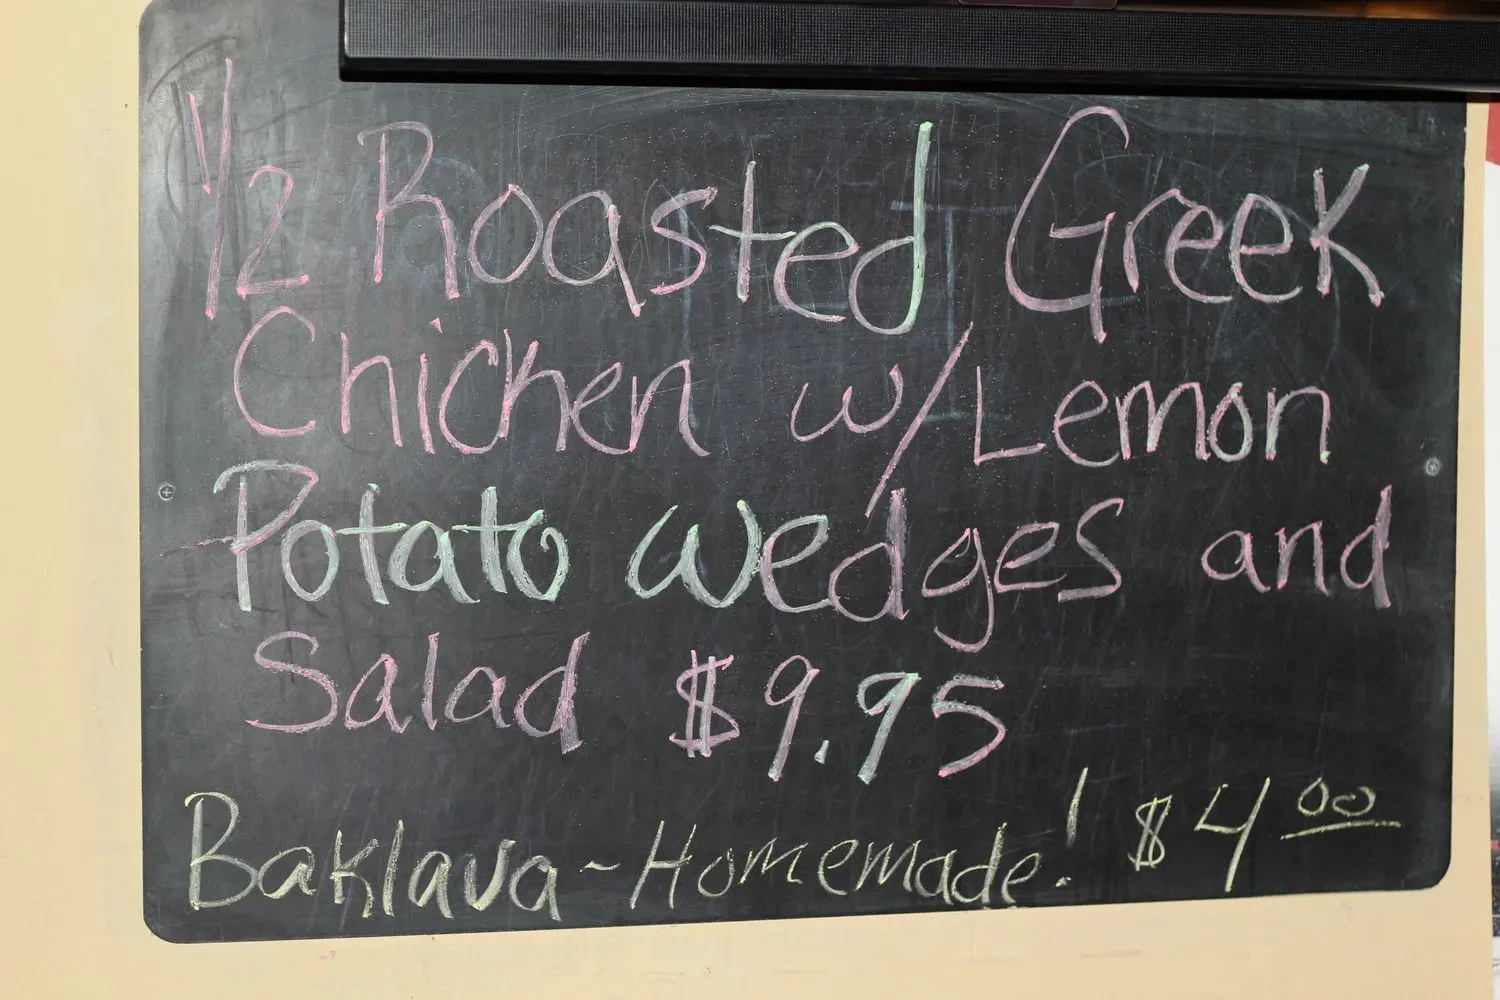 1/2 Roasted Greek
Chicken w/Lemon
Potato Wedges and
Salad $9.95
Baklava~Homemade! $4 00